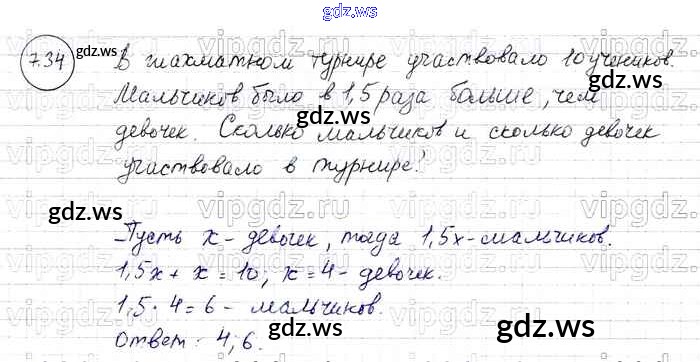 gdz.ws
734 gdz.ws В шахматном турнире участвовало 10 учеников.
gdz.ws
Мальчиков было в 1,5 раза больше, чем
девочек. Сколько мальчиков и сколько девочек
участвовало в турнире?
vipgdz.ws
gdz.ws
gdz.ws
Пусть x - девочек, тогда 1,5x - мальчиков.
1,5x + x = 10; x = 4 - девочек.
1,5 · 4 = 6 - мальчиков.
gdz.ws
gdz.ws
Ответ: 4; 6.